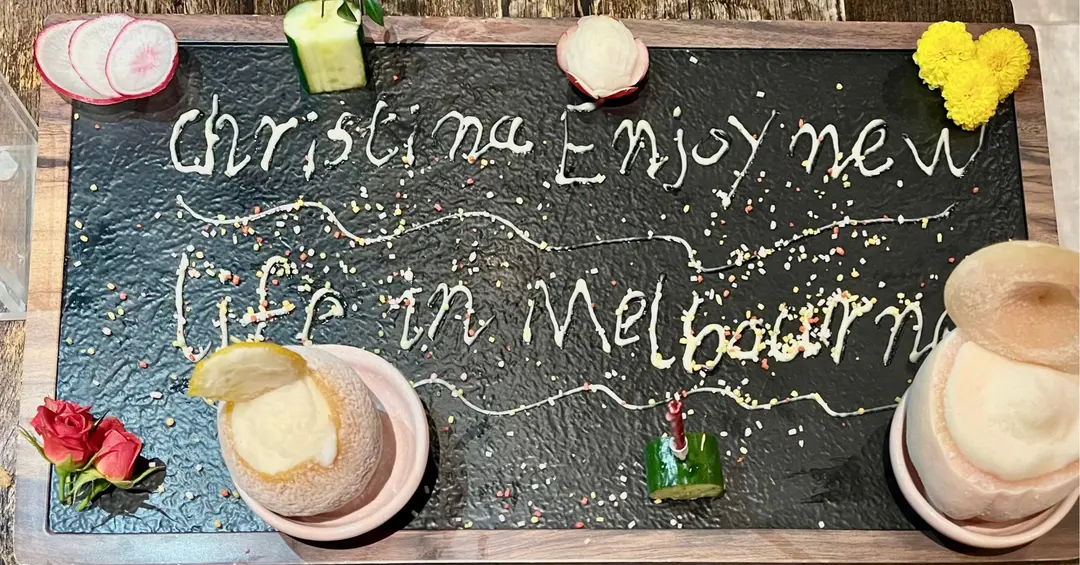 Christina Enjoy new
life in Melbourne